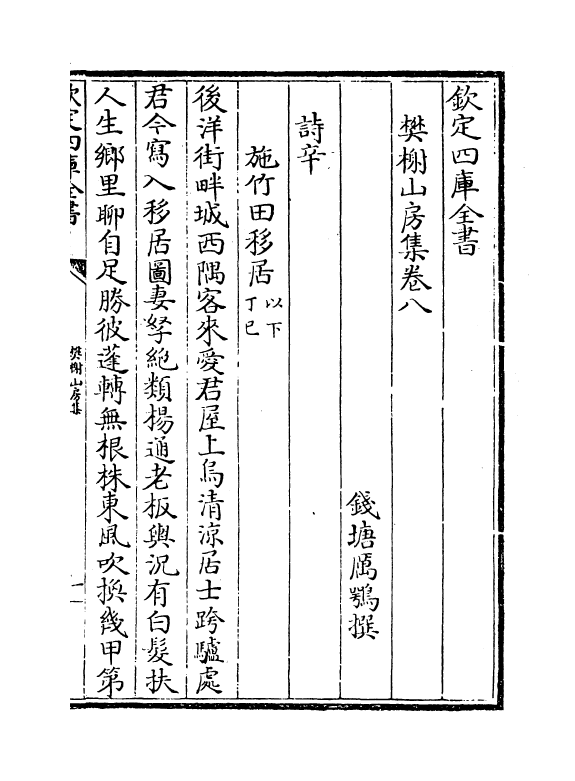 欽定四庫全書
樊榭山房集卷八
錢塘厲鶚撰
詩辛
施竹田移居以下丁巳
後洋街畔城西隅客來愛君屋上烏清涼居士跨驢處
君今寫入移居圖妻孥絶類楊通老板輿況有白髮扶
人生鄉里聊自足勝彼蓬轉無根株東風吹換幾甲第
欽定四庫全書
樊榭山房集
一